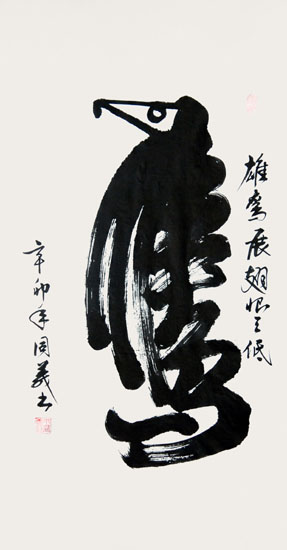 雄鹰展翅恨天低
鹰
辛卯年周義书